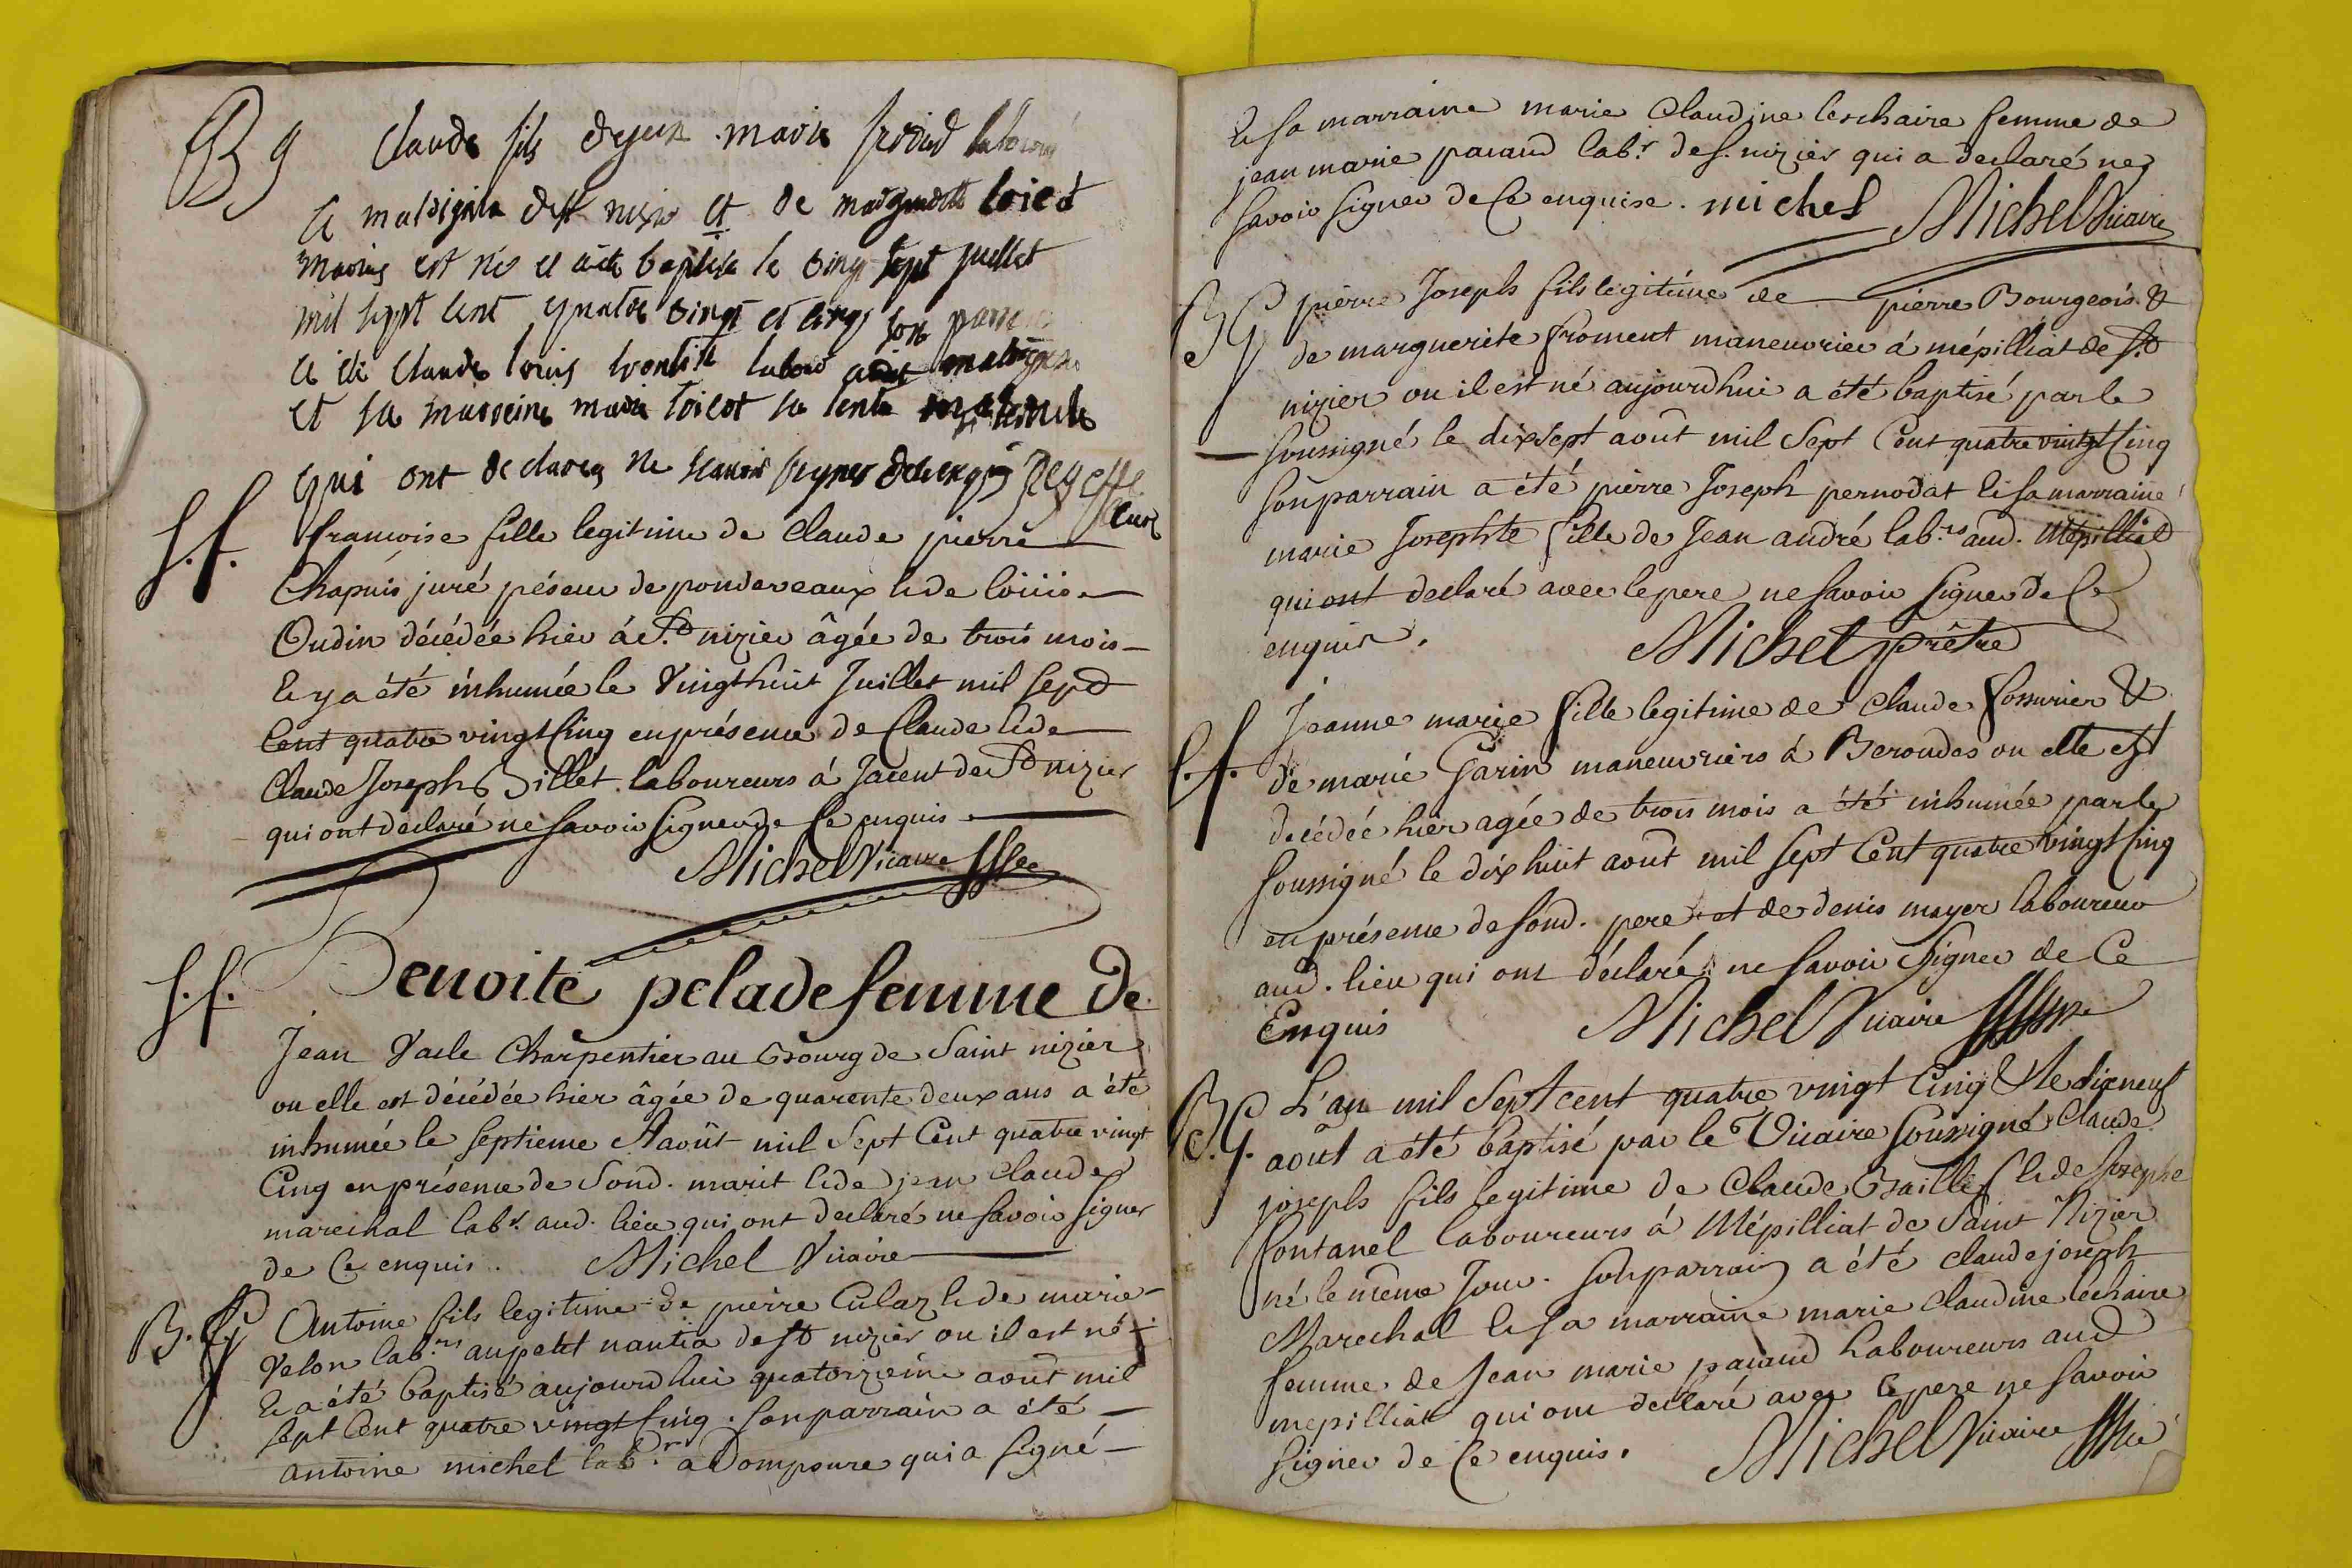 B g Claude fils de jean marie
a matignia de st nizie et de marguerite loiez
mariez est né et a été baptisé le vingt sept juillet
mil sept cent quatre vingt et cinq son parrain
a été Claude louis labour
et sa marraine marie loiez sa tente
qui ont declarez ne scavoir signer de ce enquis
curé
S. f. francoise fille legitime de Claude pierre
Chapuis juré péseur de pondeveaux & de loüise
Oudin décédée hier á St nizier âgée de trois mois
& y a été inhumée le vingthuit Juillet mil sept
Cent quatre vingt Cinq en présence de Claude & de
Claude Joseph Billet laboureurs á Jacent de St nizier
qui ont declaré ne savoir signer de Ce enquis
Michel Vicaire
S. f. Benoite pelade femme de
Jean Vacle Charpentier au Bourg de Saint nizier
ou elle est décédée hier âgée de quarente deux ans a été
inhumée le septieme Aaoût mil Sept Cent quatre vingt
Cinq en présence de Sond. marit & de jean Claude
marechal labr. aud. lieu qui ont declaré ne savoir signer
de Ce enquis. Michel Vicaire
B. G Antoine fils legitime de pierre Culaz & de marie
Velon labrs au petit nantia de st nizier ou il est né
& a été baptisé aujourdhui quatorzieme août mil
sept Cent quatre vingt Cinq. son parrain a été
antoine michel labr. á Dompsure qui a signé
& sa marraine marie Claudine leschaire femme de
jean marie pacaud labr. de s. nizier qui a declaré ne
savoir signer de Ce enquise. michel Michel Vicaire
B G pierre Joseph fils legitime de pierre Bourgeois &
de marguerite froment maneuvrier á mépilliat de St
nizier ou il est né aujourdhui a été baptisé par le
soussigné le dixsept août mil Sept Cent quatre vingt Cinq
son parrain a été pierre Joseph pernodat & sa marraine
marie Josephte fille de Jean andré labrs aud. Mépilliat
qui ont declaré avec le pere ne savoir signer de Ce
enquis. Michel prêtre
S. f. Jeanne marie fille legitime de Claude &
de marie Garin maneuvriers á Beroudes ou elle est
decédée hier agée de trois mois a été inhumée par le
soussigné le dix huit août mil sept Cent quatre vingt Cinq
en présence de sond. pere et de denis mayer laboureur
aud. lieu qui ont déclaré ne savoir signer de Ce
Enquis Michel Vicaire
B G L'an mil Sept cent quatre vingt Cinq & le dixneuf
S. G. août a été baptisé par le Vicaire soussigné Claude
joseph fils legitime de Claude Bailli & de Josephe
fontanel laboureurs á Mépilliat de Saint Nizier
né le même Jour. Son parrain a été claude joseph
Marechal & sa marraine marie claudine lechaire
femme de Jean marie pacaud Laboureurs aud
mepilliat qui ont declaré avec le pere ne savoir
signer de Ce enquis. Michel Vicaire